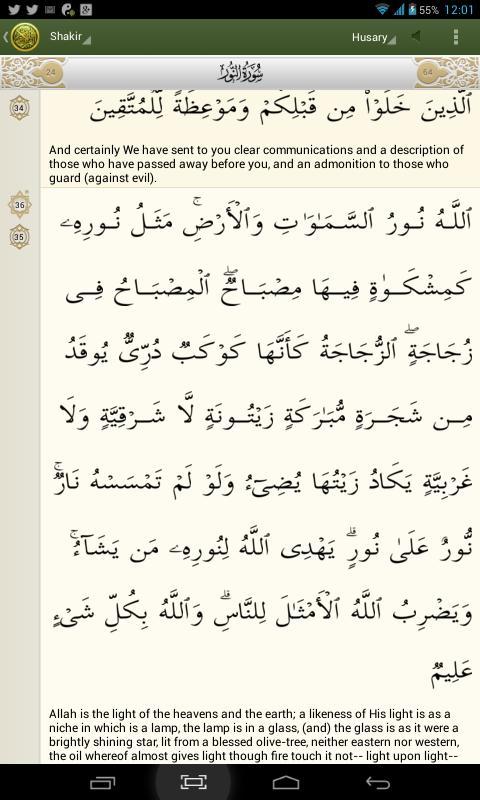 55% 12:01
Shakir Husary
24 سُورَةُ النُّورِ 64
34 ٱلَّذِينَ خَلَوْا۟ مِن قَبْلِكُمْ وَمَوْعِظَةً لِّلْمُتَّقِينَ
And certainly We have sent to you clear communications and a description of
those who have passed away before you, and an admonition to those who
guard (against evil).
36
35
ٱللَّهُ نُورُ ٱلسَّمَـٰوَٰتِ وَٱلْأَرْضِ ۚ مَثَلُ نُورِهِۦ
كَمِشْكَوٰةٍ فِيهَا مِصْبَاحٌ ۖ ٱلْمِصْبَاحُ فِى
زُجَاجَةٍ ۖ ٱلزُّجَاجَةُ كَأَنَّهَا كَوْكَبٌ دُرِّىٌّ يُوقَدُ
مِن شَجَرَةٍ مُّبَـٰرَكَةٍ زَيْتُونَةٍ لَّا شَرْقِيَّةٍ وَلَا
غَرْبِيَّةٍ يَكَادُ زَيْتُهَا يُضِىٓءُ وَلَوْ لَمْ تَمْسَسْهُ نَارٌ ۚ
نُّورٌ عَلَىٰ نُورٍ ۗ يَهْدِى ٱللَّهُ لِنُورِهِۦ مَن يَشَآءُ ۚ
وَيَضْرِبُ ٱللَّهُ ٱلْأَمْثَـٰلَ لِلنَّاسِ ۗ وَٱللَّهُ بِكُلِّ شَىْءٍ
عَلِيمٌ
Allah is the light of the heavens and the earth; a likeness of His light is as a
niche in which is a lamp, the lamp is in a glass, (and) the glass is as it were a
brightly shining star, lit from a blessed olive-tree, neither eastern nor western,
the oil whereof almost gives light though fire touch it not-- light upon light--